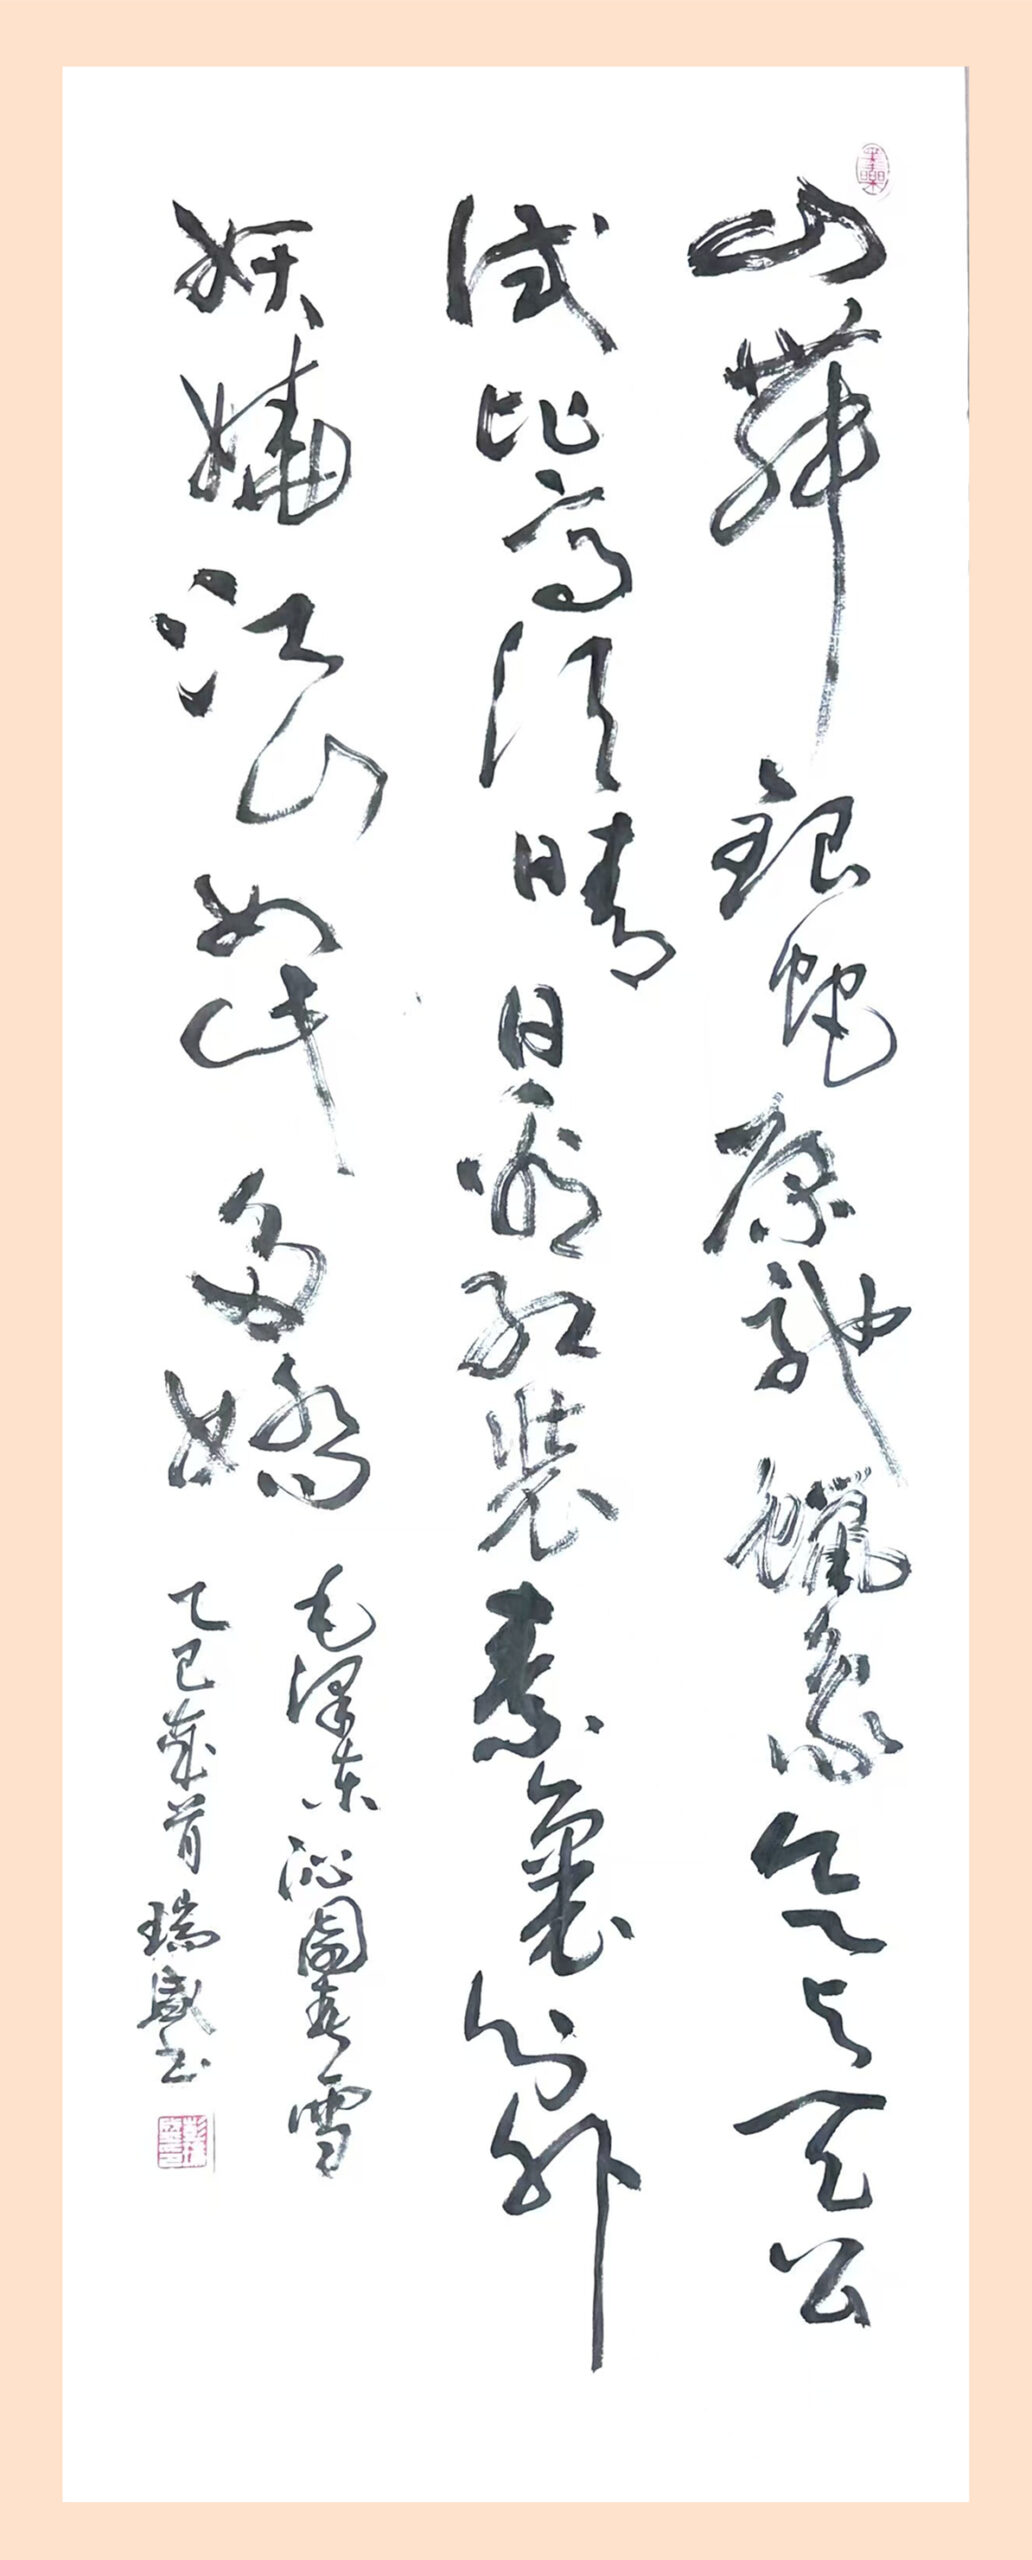 山舞银蛇原驰蠟象欲与天公
试比高须晴日看红装素裹分外
妖娆江山如此多娇
毛泽东沁園春雪
乙巳歲首瑞盛书